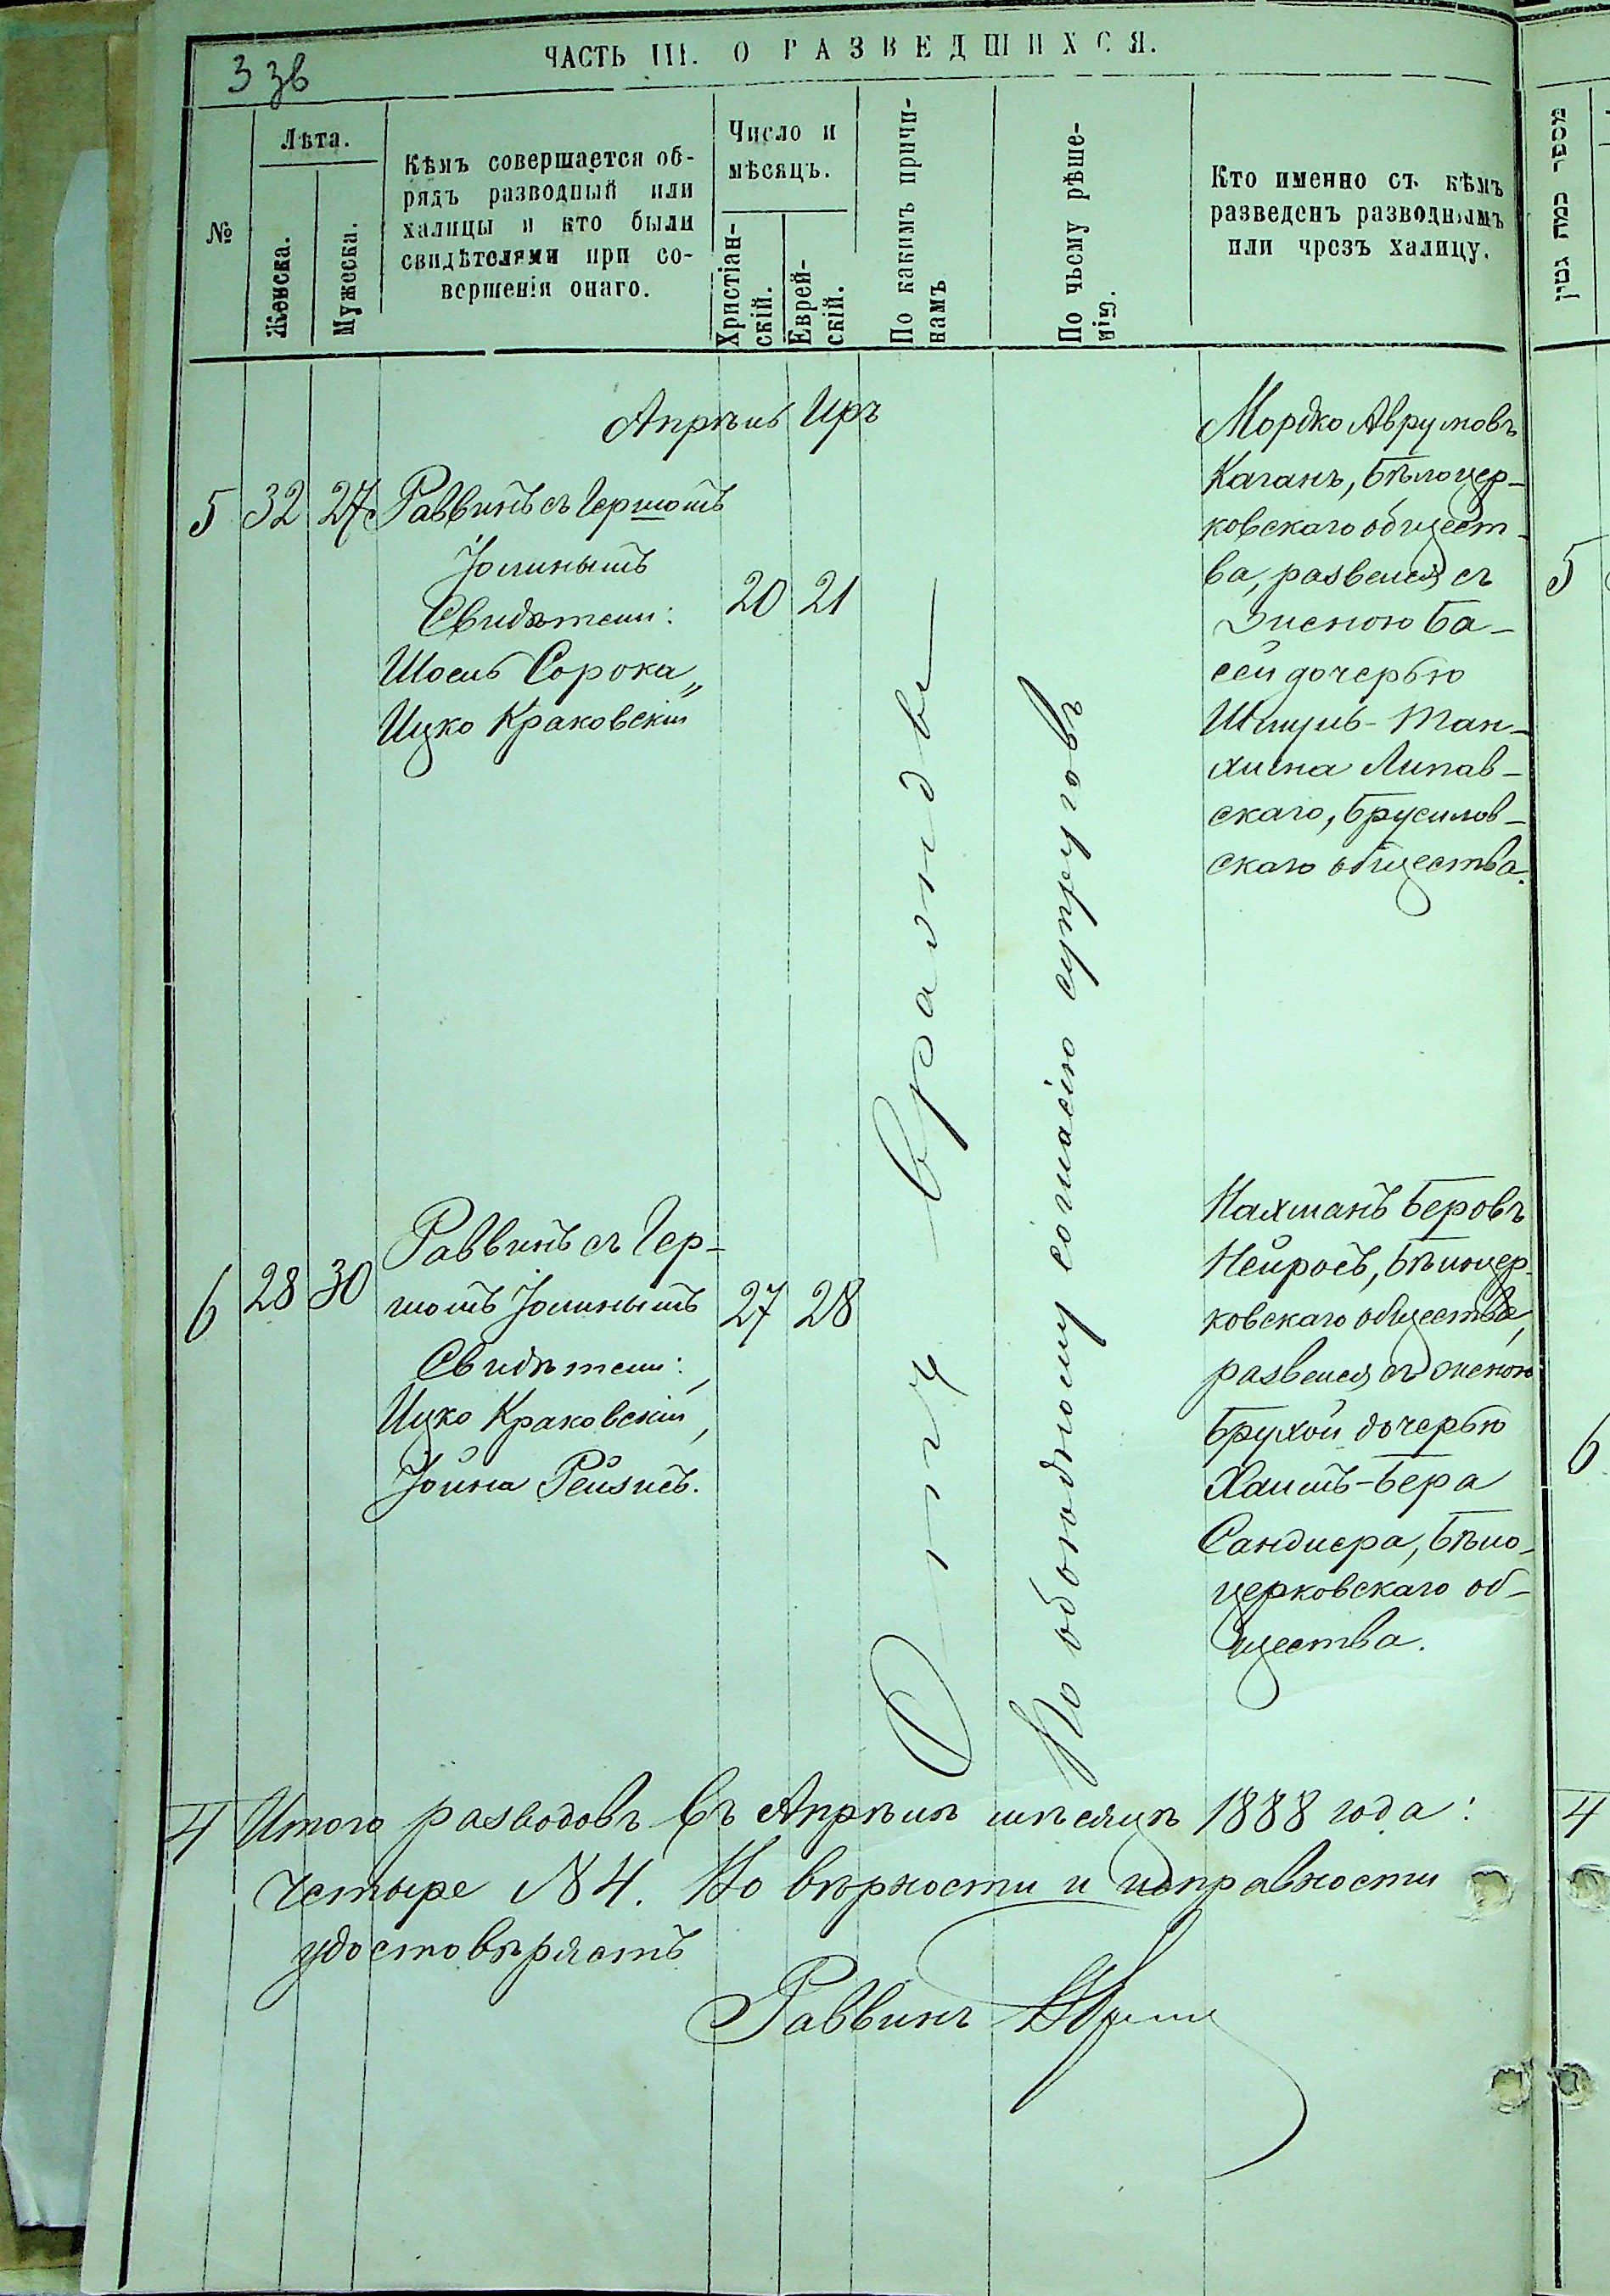 3 зв
ЧАСТЬ III. О РАЗВЕДШИХСЯ.
№
Лѣта.
Женска.
Мужеска.
Кѣмъ совершается об-
рядъ разводный или
халицы и кто были
свидѣтелями при со-
вершеніи онаго.
Число и
мѣсяцъ.
Христіан-
скій.
Еврей-
скій.
По какимъ причи-
намъ
По чьему рѣше-
нію.
Кто именно съ кѣмъ
разведенъ разводнымъ
или чрезъ халицу.
מספר כמה גטין
Апрѣль Иръ
5 32 27 Раввинъ съ Гершомъ
Іолинымъ
Свидѣтели:
Шоель Сорока„
Ицко Краковскій
20 21
Мордко Аврумовъ
Каганъ, Бѣлоцер-
ковскаго общест-
ва, развелся съ
женою Ба-
сей дочерью
Шмуль-Тан-
хина Липав-
скаго, Брусилов-
скаго общества.
5
6 28 30
Раввинъ съ Гер-
шомъ Іолинымъ
Свидѣтели:
Ицко Краковскій,
Іойна Рейзисъ.
27 28
вражды
По обоюдному согласію супруговъ
Нахманъ Беровъ
Бѣлоцер-
ковскаго общества,
развелся съ женою
Брухой дочерью
Хаимъ-Бера
Сандлера, Бѣло-
церковскаго об-
щества.
6
4 Итого разводовъ въ Апрѣлѣ мѣсяцѣ 1888 года:
четыре №4. Но вѣрности и исправности
удостовѣряетъ
Раввинъ
4